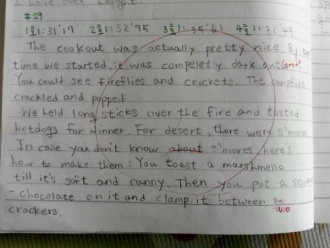 #29
The cookout was actually pretty nice. By the
time we started, it was completly dark out
You could see fireflies and crickets. The campfire
crackled and popped
We held long sticks over the fire and tosted
hotdogs for dinner. For desert, there were s'mores
In case you don't know about s'mores, heres
how to make them: You toast a marshmello
till it's soft and runny. Then you put a
chocolate on it and clamp it between two
crackers.